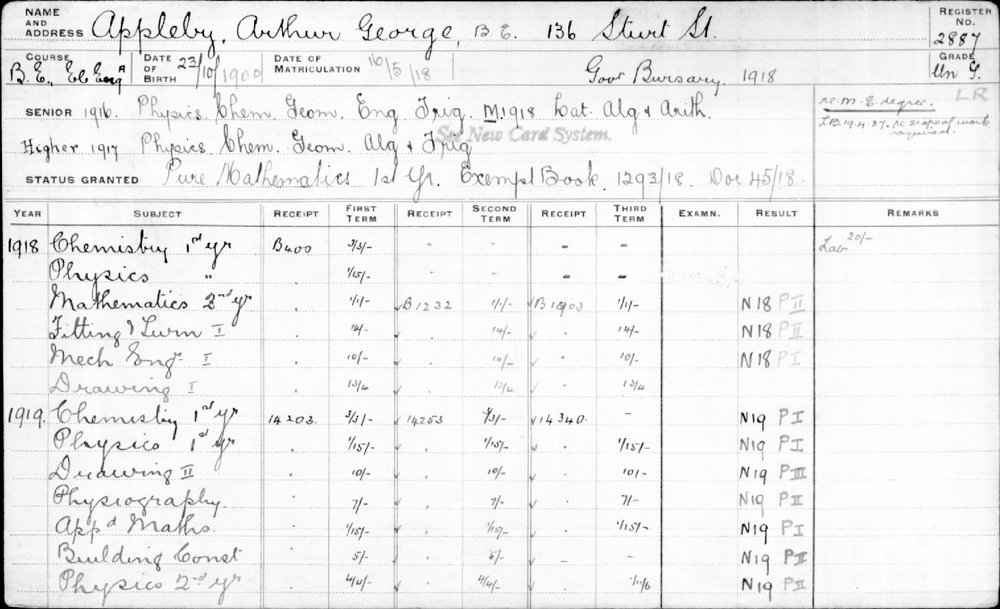 NAME AND ADDRESS Appleby, Arthur George, B.E. 136 Sturt St. REGISTER NO. 2887
COURSE B.E. DATE OF BIRTH 23/10/1900 DATE OF MATRICULATION 16/5/18 Govr Bursary, 1918 GRADE Un G.
SENIOR 1916. Physics. Chem. Geom. Eng. Trig. M.1918 Lat. Alg & Arith.
re. M. E. degree. LR
LB.19.4.37. re scope of work required.
See New Card System.
Higher 1917 Physics. Chem. Geom. Alg & Trig
STATUS GRANTED Pure Mathematics 1st Yr. Exempt Book. 1293/18. Doc 45/18.
YEAR SUBJECT RECEIPT FIRST TERM RECEIPT SECOND TERM RECEIPT THIRD TERM EXAMN. RESULT REMARKS
1918 Chemistry 1st yr B400 3/3/- - - - - Lab 20/-
Physics " 1/15/- - - - -
Mathematics 2nd yr 1/1/- B1232 1/1/- 1/1/- N18 P II
Fitting & Turn I 14/- 14/- 14/- N18 P II
Mech Engr. I 10/- 10/- 10/- N18 P I
Drawing I 13/4 13/4 13/4
1919. Chemistry 1st yr 14203. 3/3/- 14253 3/3/- 14340. - N19 P I
Physics 1st yr 1/15/- 1/15/- 1/15/- N19 P I
Drawing II 10/- 10/- 10/- N19 P III
Physiography. 7/- 7/- 7/- N19 P II
Appd Maths. 1/15/- 1/15/- 1/15/- N19 P I
Building Const 5/- 5/- - N19 P II
Physics 2nd yr 4/4/- 4/4/- 1/11/6 N19 P II